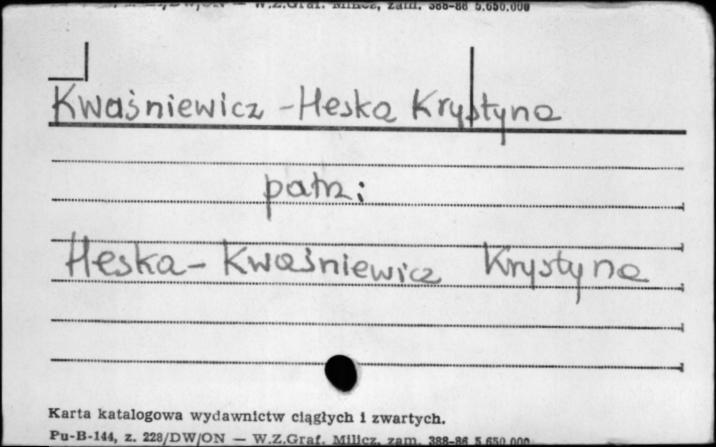 W.Z.Graf. Milicz, zam. 388-86 5.650.000
Kwaśniewicz - Heska Krystyna
patrz:
Heska - Kwaśniewicz Krystyna
Karta katalogowa wydawnictw ciągłych i zwartych.
Pu-B-144, z. 228/DW/ON — W.Z.Graf. Milicz, zam. 388-86 5.650.000